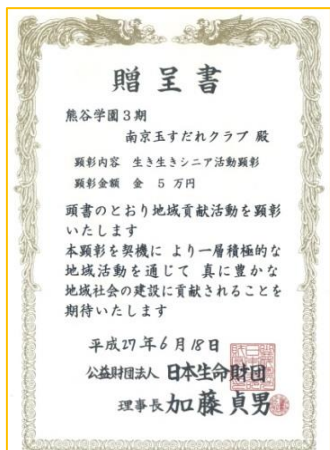 贈呈書
熊谷学園3期
南京玉すだれクラブ 殿
顕彰内容 生き生きシニア活動顕彰
顕彰金額 金 5 万円
頭書のとおり地域貢献活動を顕彰
いたします
本顕彰を契機に より一層積極的な
地域活動を通じて 真に豊かな
地域社会の建設に貢献されることを
期待いたします
平成27年6月18日
公益財団法人 日本生命財団
理事長 加藤貞男